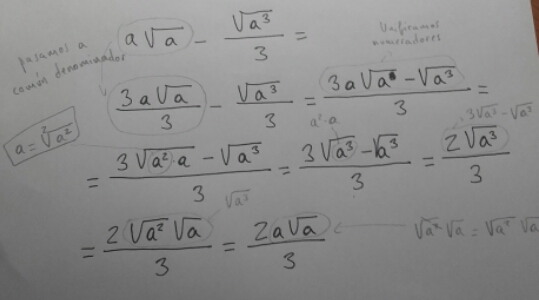 a√a − √a³/3 =
pasamos a
común denominador
Unificamos
numeradores
3a√a/3 − √a³/3 = (3a√a − √a³)/3 =
a = ²√a²
a²·a
3√a³ − √a³
= (3√a²·a − √a³)/3 = (3√a³ − √a³)/3 = 2√a³/3
√a³
= 2√a²√a/3 = 2a√a/3
√a²√a = √a² √a